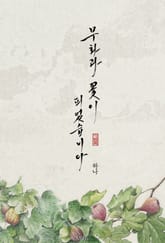 무화과 꽃이
피었습니다
하나